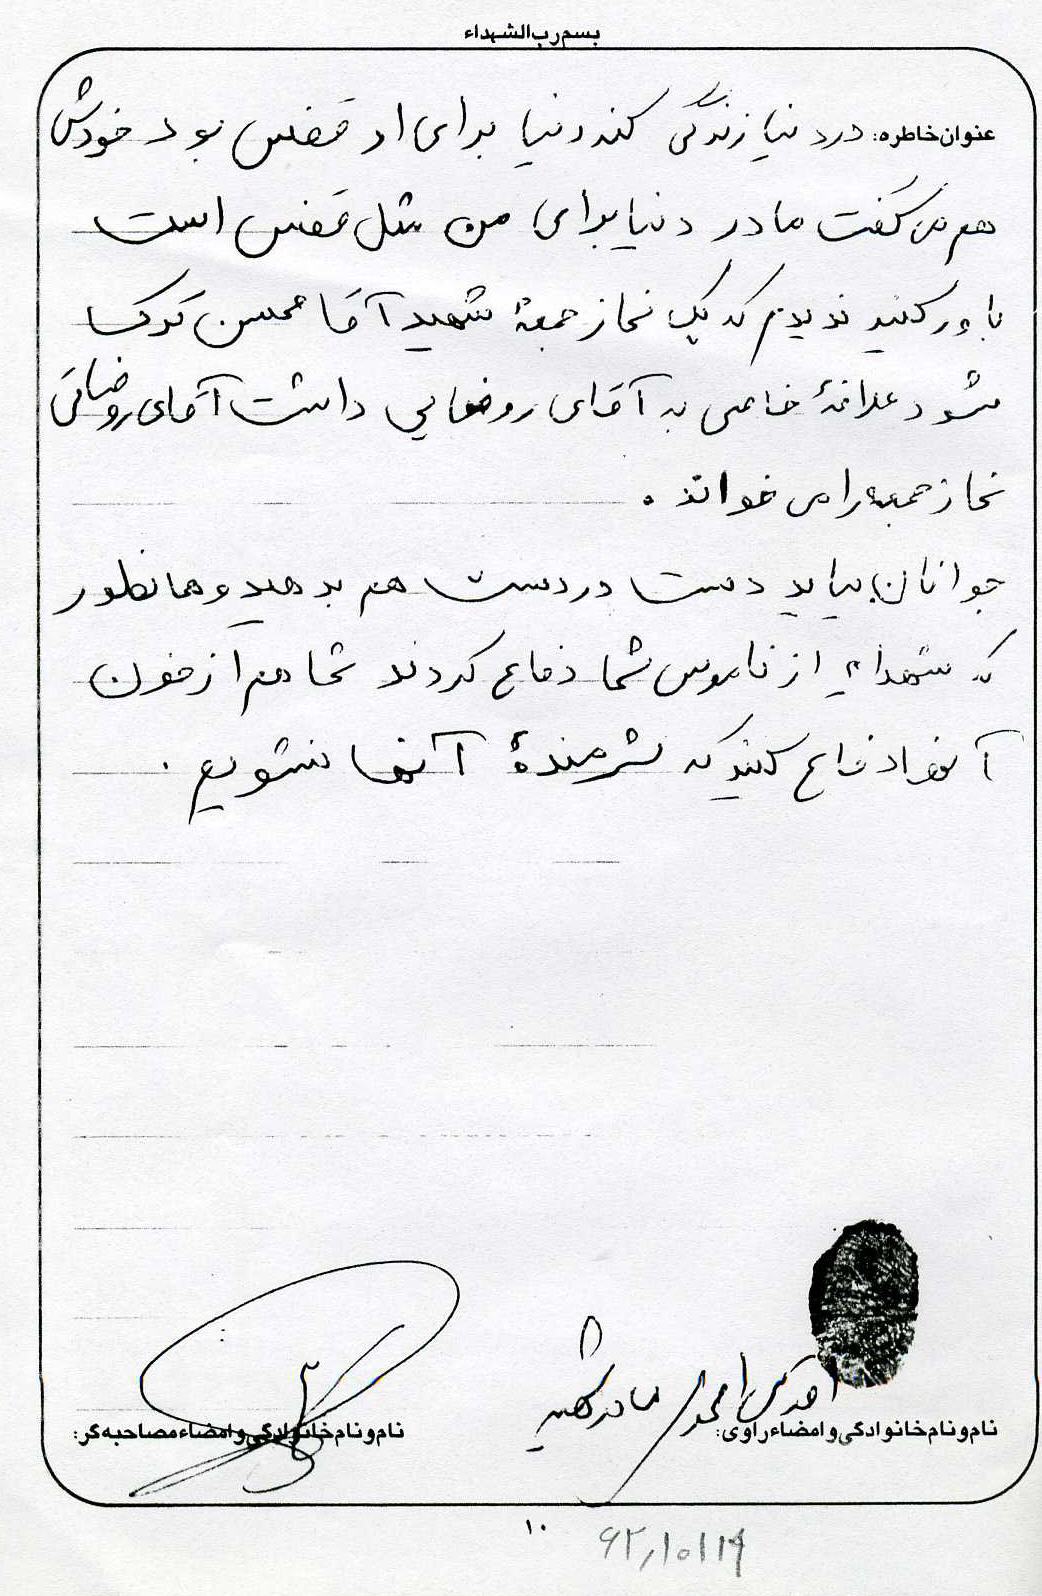 بسم رب الشهداء
عنوان خاطره: در دنیا زندگی کند دنیا برای او قفس بود خودش
هم می گفت مادر دنیا برای من مثل قفس است
باور کنید ندیدم که یک نماز جمعهٔ شهید آقا محسن ترک
شود علاقهٔ خاصی به آقای روضاتی داشت آقای روضاتی
نماز جمعه را می خواند .
جوانان بیاید دست در دست هم بدهید و همانطور
که شهدا از ناموس شما دفاع کردند شما هم از خون
آنها دفاع کنید که شرمندهٔ آنها نشویم .
مادر شهید
نام و نام خانوادگی و امضاء راوی:
نام و نام خانوادگی و امضاء مصاحبه گر:
۱۰